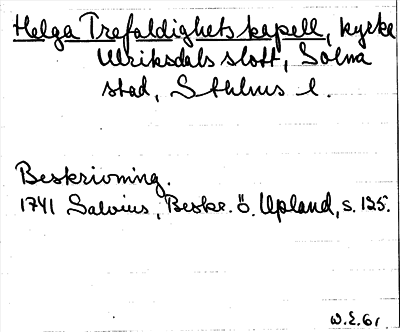 Helga Trefaldighets kapell, kyrka
Ulriksdals slott, Solna
stad, Sthlms l.
Beskrivning.
1741 Salvius, Beskr. ö. Upland, s. 125.
W.E.61